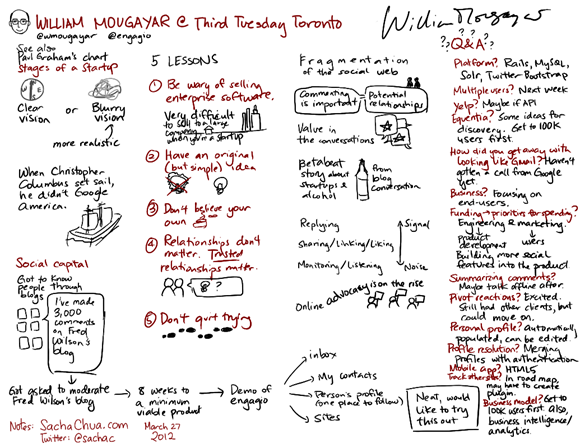 WILLIAM MOUGAYAR @ Third Tuesday Toronto
@wmougayar @engagio
William Mougayar
See also
Paul Graham's chart
Stages of a Startup
Clear vision
or
Blurry vision
more realistic
When Christopher
Columbus set sail,
he didn't Google
America.
Social capital
Got to know
people through
blogs
I've made
3,000
comments
on Fred
Wilson's
blog
Got asked to moderate
Fred Wilson's blog
8 weeks to
a minimum
viable product
Demo of
engagio
inbox
My contacts
Person's profile
(one place to follow)
Sites
Neat, would
like to try
this out
5 LESSONS
1 Be wary of selling
enterprise software.
Very difficult
to sell to a large
company
when you're a startup
2 Have an original
(but simple) idea
3 Don't believe your
own
4 Relationships don't
matter. Trusted
relationships matter.
?
5 Don't quit trying
Fragmentation
of the social web
Commenting
is important
Potential
relationships
Value in
the conversations
Betabeat
story about
startups &
alcohol
From
blog
conversation
Replying
Signal
Sharing/Linking/Liking
Monitoring/Listening
Noise
Online advocacy is on the rise
? ? Q&A ? ?
Platform? Rails, MySQL,
Solr, Twitter Bootstrap
Multiple users? Next week
Yelp? Maybe if API
Equentia? Some ideas for
discovery. Get to 100K
users first.
How did you get away with
looking like Gmail? Haven't
gotten a call from Google
yet.
Business? Focusing on
end-users.
Funding → priorities for spending?
Engineering & marketing.
product
development
users
Building more social
features into the product
Summarizing comments?
Maybe talk offline after.
Pivot reactions? Excited.
Still had other clients, but
could move on.
Personal profile? Automatically
populated, can be edited.
Profile resolution? Merging
Profiles with authentication
Mobile app? HTML5
Track others' sites? In road map,
may have to create
plugin.
Business model? Get to
100K users first also,
business intelligence/
analytics.
Notes: SachaChua.com
Twitter: @sachac
March 27
2012